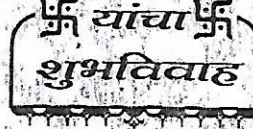 卐 यांचा 卐
शुभविवाह